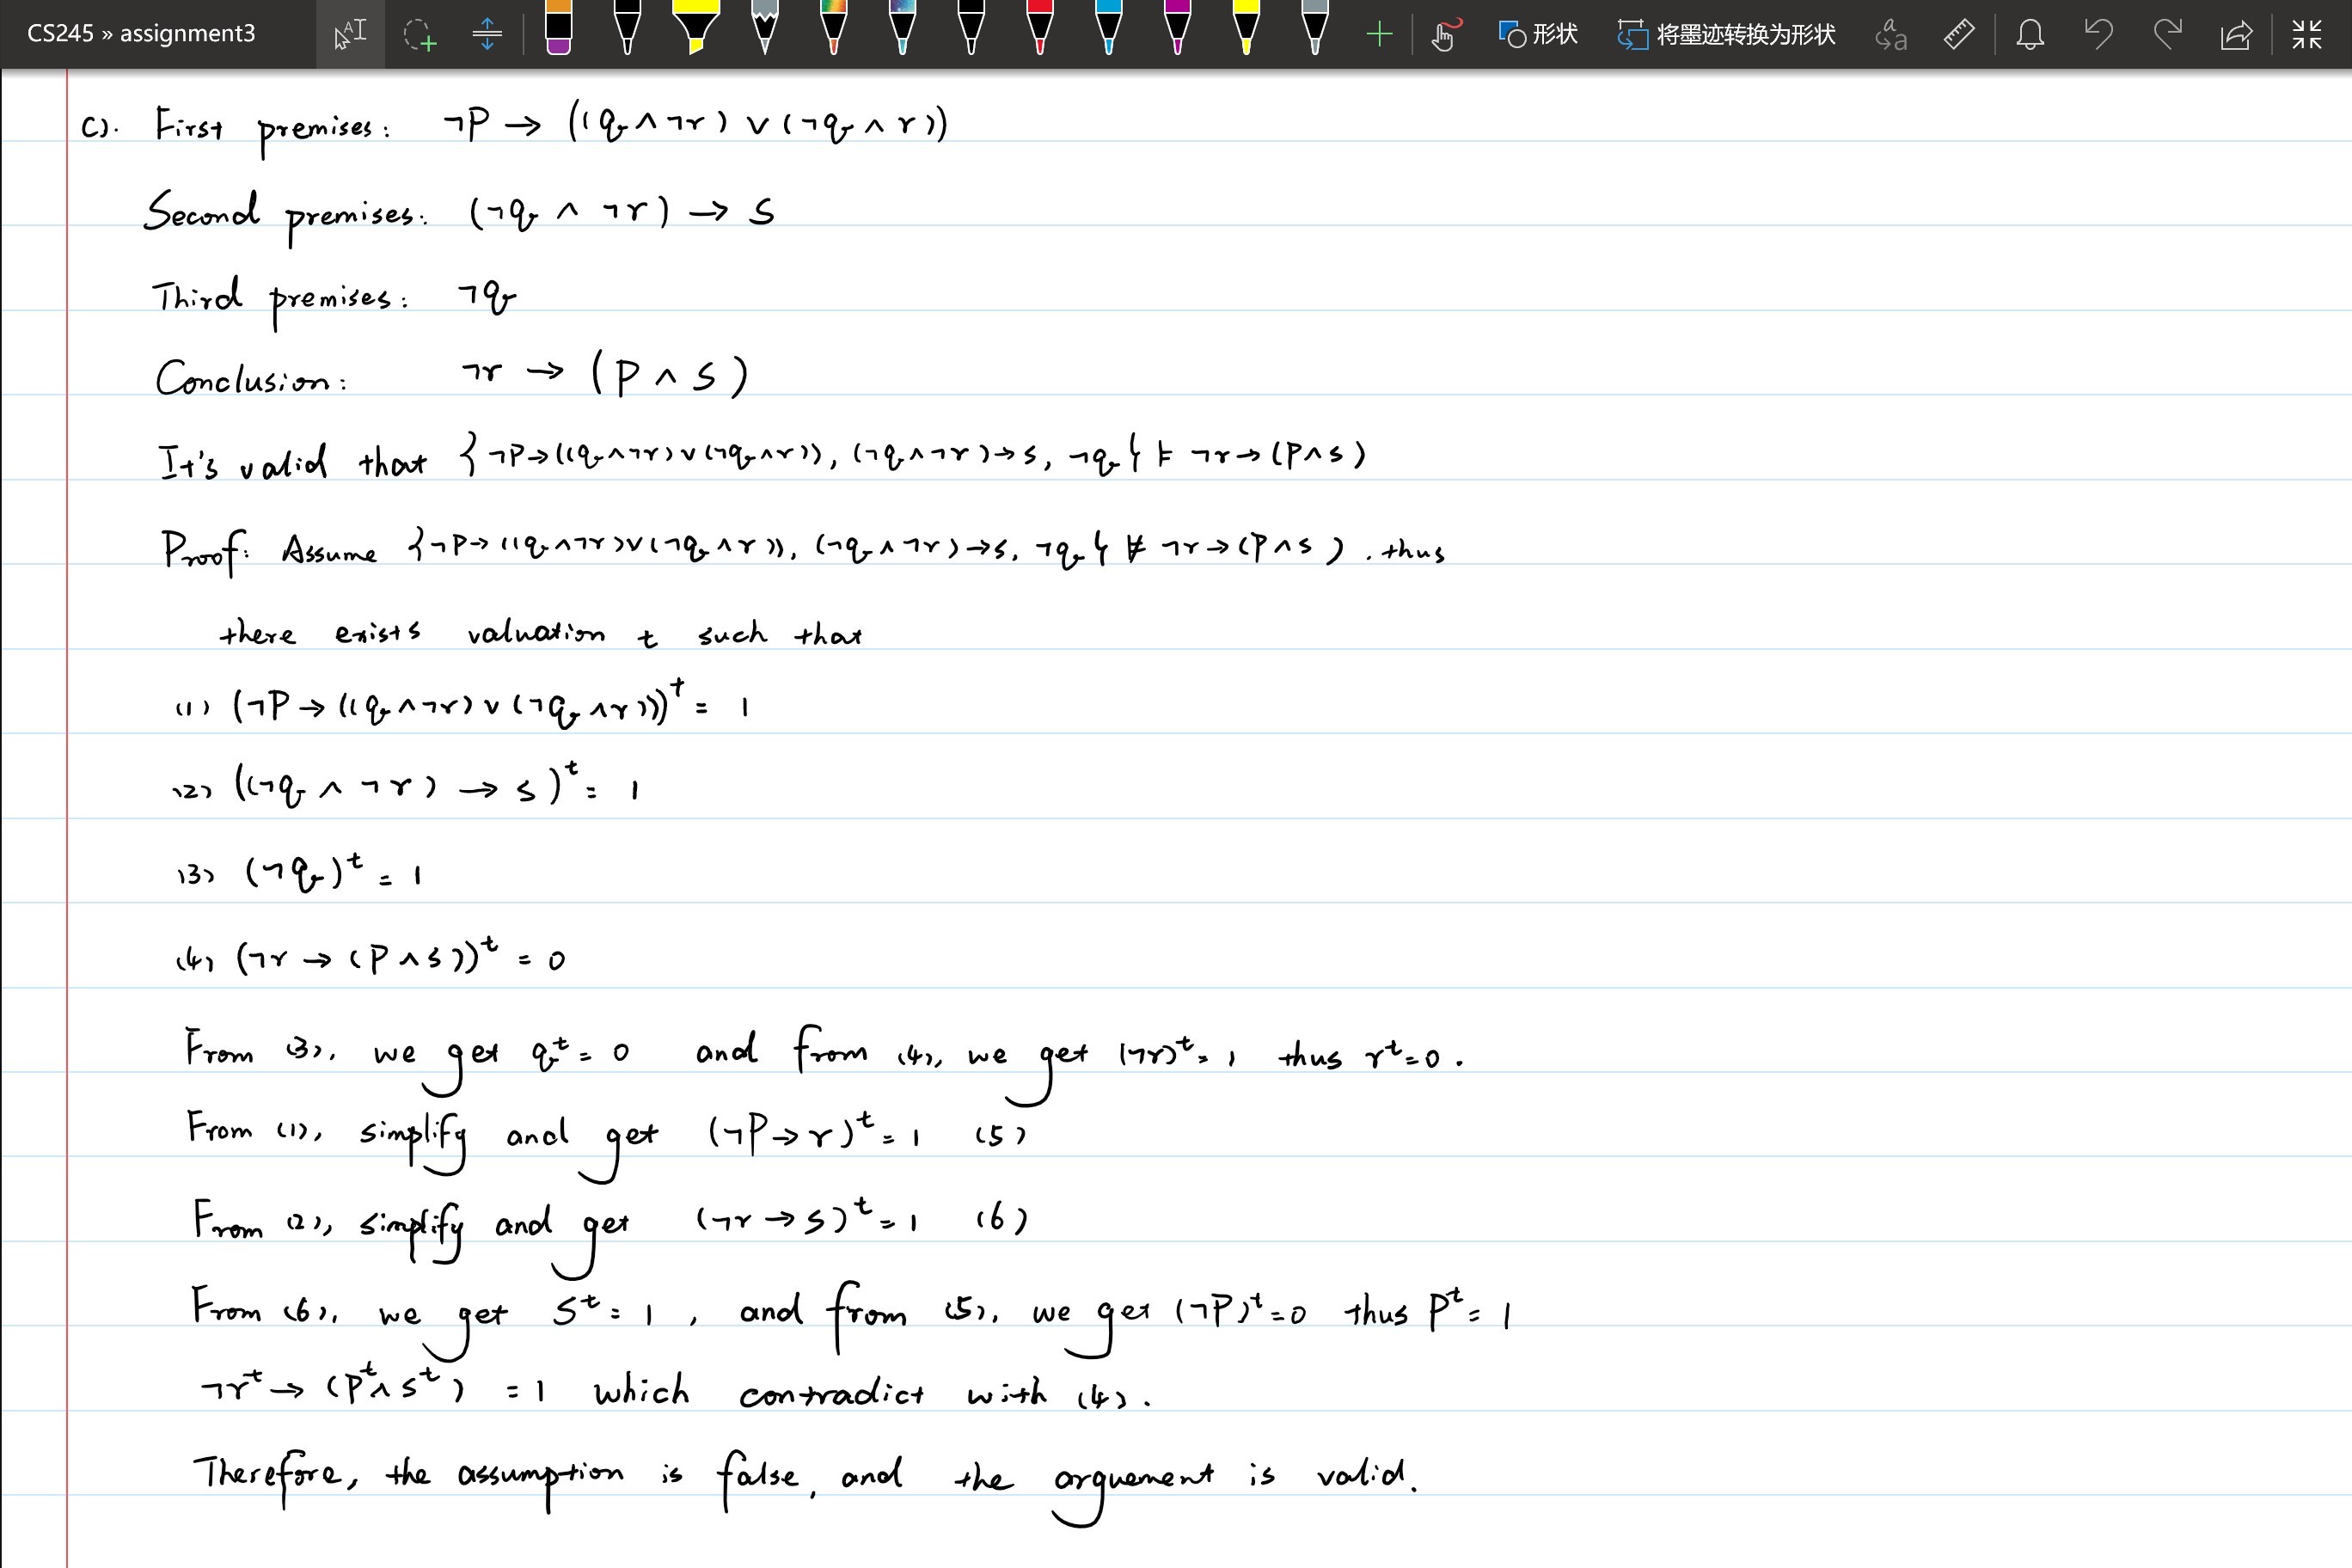 CS245 » assignment3
形状
将墨迹转换为形状
c). First premises: ¬P → ((q ∧ ¬r) ∨ (¬q ∧ r))
Second premises: (¬q ∧ ¬r) → s
Third premises: ¬q
Conclusion: ¬r → (P ∧ s)
It's valid that {¬P→((q∧¬r)∨(¬q∧r)), (¬q∧¬r)→s, ¬q} ⊨ ¬r→(P∧s)
Proof: Assume {¬P→((q∧¬r)∨(¬q∧r)), (¬q∧¬r)→s, ¬q} ⊭ ¬r→(P∧s). thus
there exists valuation t such that
(1) (¬P→((q∧¬r)∨(¬q∧r)))ᵗ = 1
(2) ((¬q ∧ ¬r) → s)ᵗ = 1
(3) (¬q)ᵗ = 1
(4) (¬r → (P∧s))ᵗ = 0
From (3), we get qᵗ = 0 and from (4), we get (¬r)ᵗ = 1 thus rᵗ=0.
From (1), simplify and get (¬P→r)ᵗ = 1 (5)
From (2), simplify and get (¬r→s)ᵗ = 1 (6)
From (6), we get sᵗ = 1, and from (5), we get (¬P)ᵗ=0 thus Pᵗ = 1
¬rᵗ → (Pᵗ∧sᵗ) = 1 which contradict with (4).
Therefore, the assumption is false, and the arguement is valid.